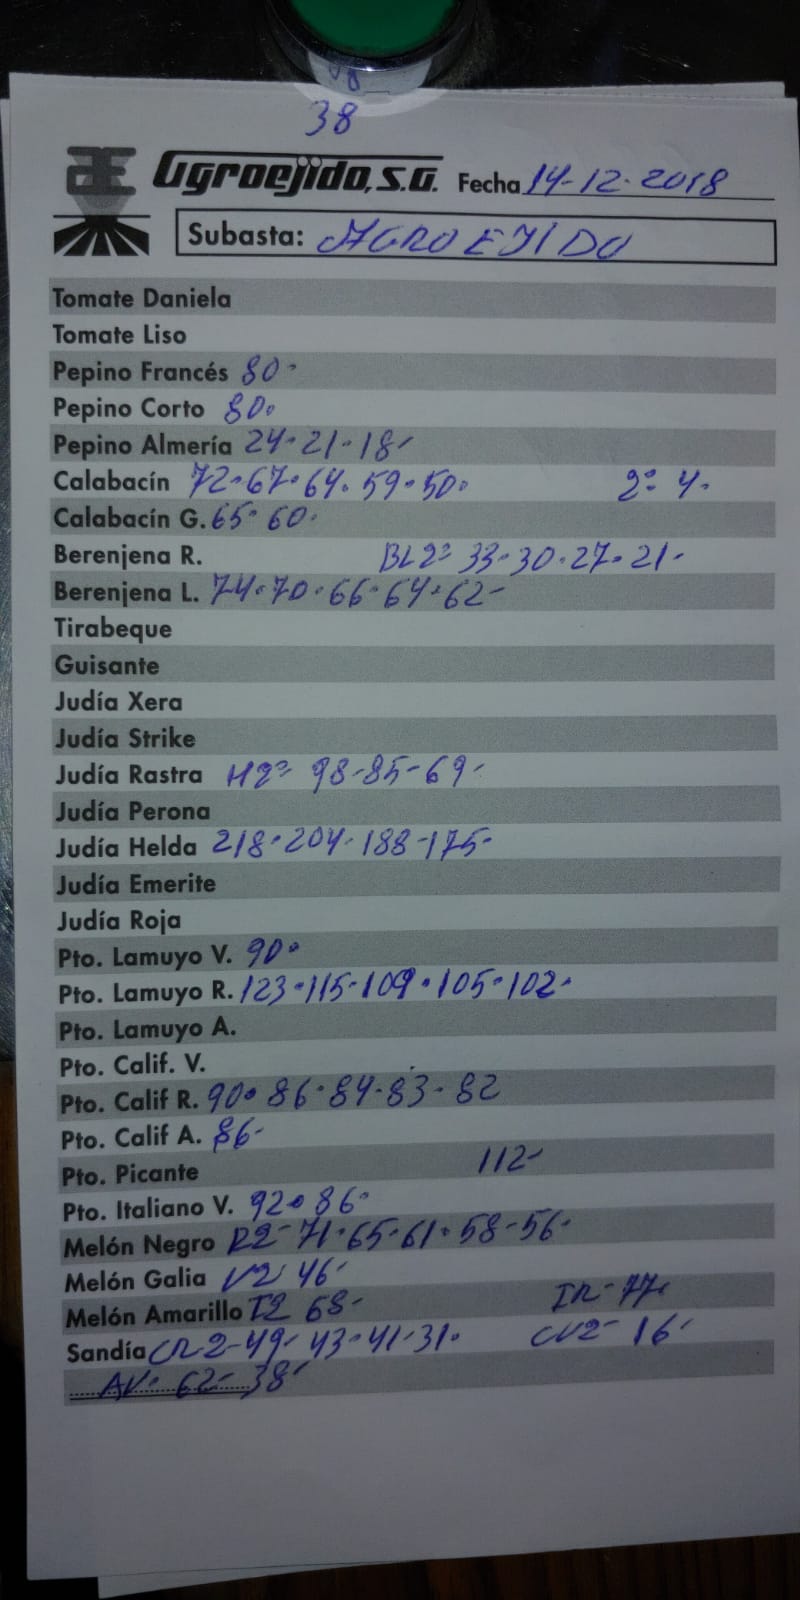 38
Agroejido, S.A. Fecha 14-12-2018
Subasta: AGROEJIDO
Tomate Daniela
Tomate Liso
Pepino Francés 80-
Pepino Corto 80.
Pepino Almería 24-21-18-
Calabacín 72-67-64-59-50. 2ª 4.
Calabacín G. 65-60.
Berenjena R. BL2ª 33-30-27-21-
Berenjena L. 74-70-66-64-62-
Tirabeque
Guisante
Judía Xera
Judía Strike
Judía Rastra H2ª 98-85-69-
Judía Perona
Judía Helda 218-204-188-175-
Judía Emerite
Judía Roja
Pto. Lamuyo V. 90.
Pto. Lamuyo R. 123-115-109-105-102-
Pto. Lamuyo A.
Pto. Calif. V.
Pto. Calif R. 90-86-84-83-82
Pto. Calif A. 86-
Pto. Picante 112-
Pto. Italiano V. 92-86-
Melón Negro R2-71-65-61-58-56-
Melón Galia V2 46-
Melón Amarillo I2 68- IR-77.
Sandía CR2-49-43-41-31. CV2-16-
AV-62-38-